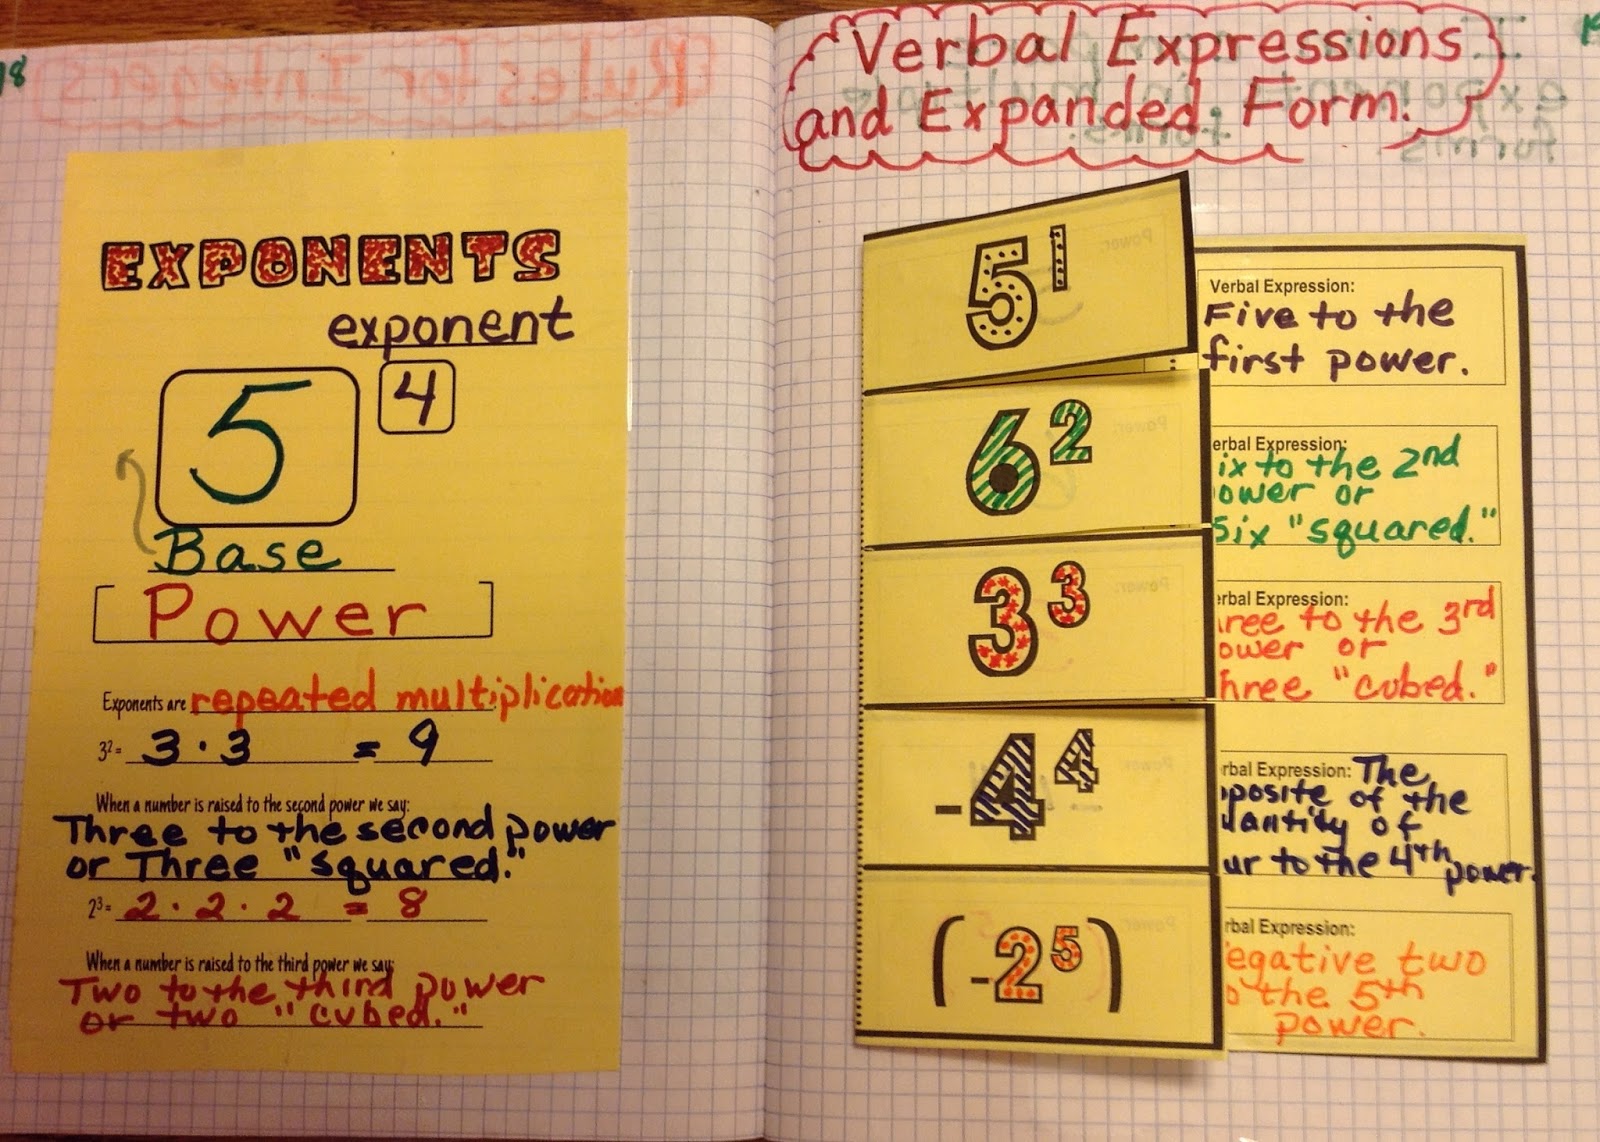 18
Rules for Integers
EXPONENTS
exponent
5 4
Base
Power
Exponents are repeated multiplication
3²= 3 · 3 = 9
When a number is raised to the second power we say:
Three to the second power
or Three "squared."
2³= 2 · 2 · 2 = 8
When a number is raised to the third power we say:
Two to the third power
or two "cubed."
Verbal Expressions
and Expanded Form.
5¹
Verbal Expression:
Five to the
first power.
6²
erbal Expression:
ix to the 2nd
ower or
Six "squared."
3³
erbal Expression:
hree to the 3rd
ower or
hree "cubed."
-4⁴
rbal Expression: The
pposite of the
uantity of
ur to the 4th power.
(-2⁵)
rbal Expression:
egative two
o the 5th
power.